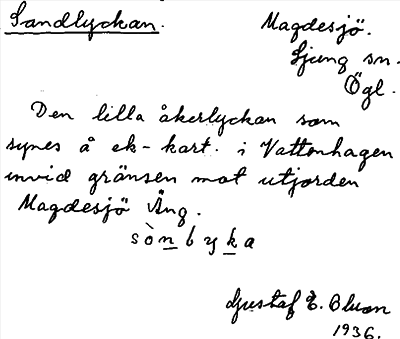 Sandlyckan.
Magdesjö.
Ljung sn.
Ögl.
Den lilla åkerlyckan som
synes å ek-kart. i Vattenhagen
invid gränsen mot utjorden
Magdesjö Äng.
sònbyka
Gustaf E. Bluon
1936.